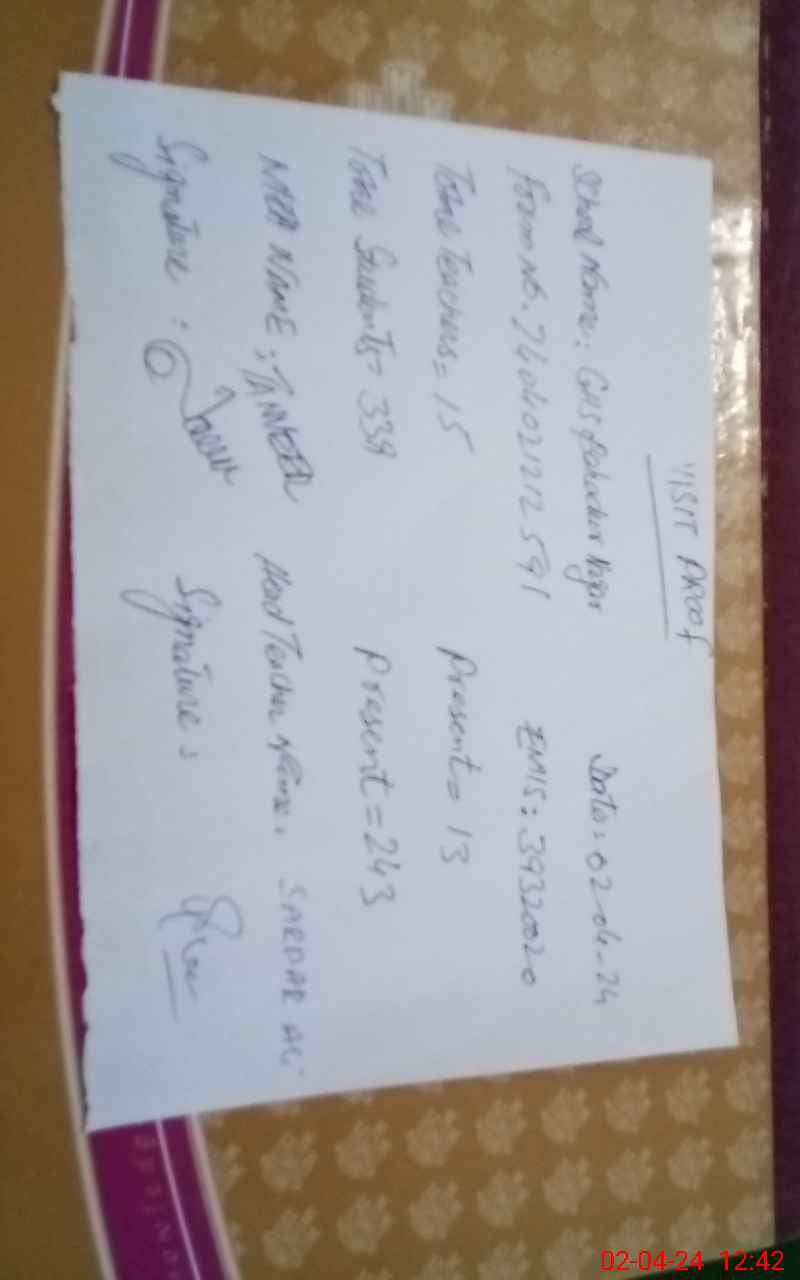 VISIT PROOF
School Name: GHS Bahadur Nagar Date: 02-04-24
Form No. 7404021212591 EMIS: 39320020
Total Teachers = 15 Present = 13
Total Students = 339 Present = 243
NAME: TANVEER Head Teacher Name: SARDAR ALI
Signature: Signature:
02-04-24 12:42